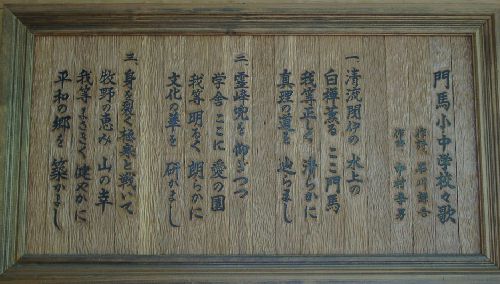 門馬小中学校々歌
作詞 岩川
作曲 中村幸男
一 清流閉伊の 水上の
白樺薫る ここ門馬
我等正しく 清らかに
真理の道を 辿らまし
二 霊峰兜を 仰ぎつつ
学舎ここに 愛の園
我等明るく 朗らかに
文化の華を 研かまし
三 身を裂く極寒と戦いて
牧野の恵み 山の幸
我等まさきく 健やかに
平和の郷を 築かまし